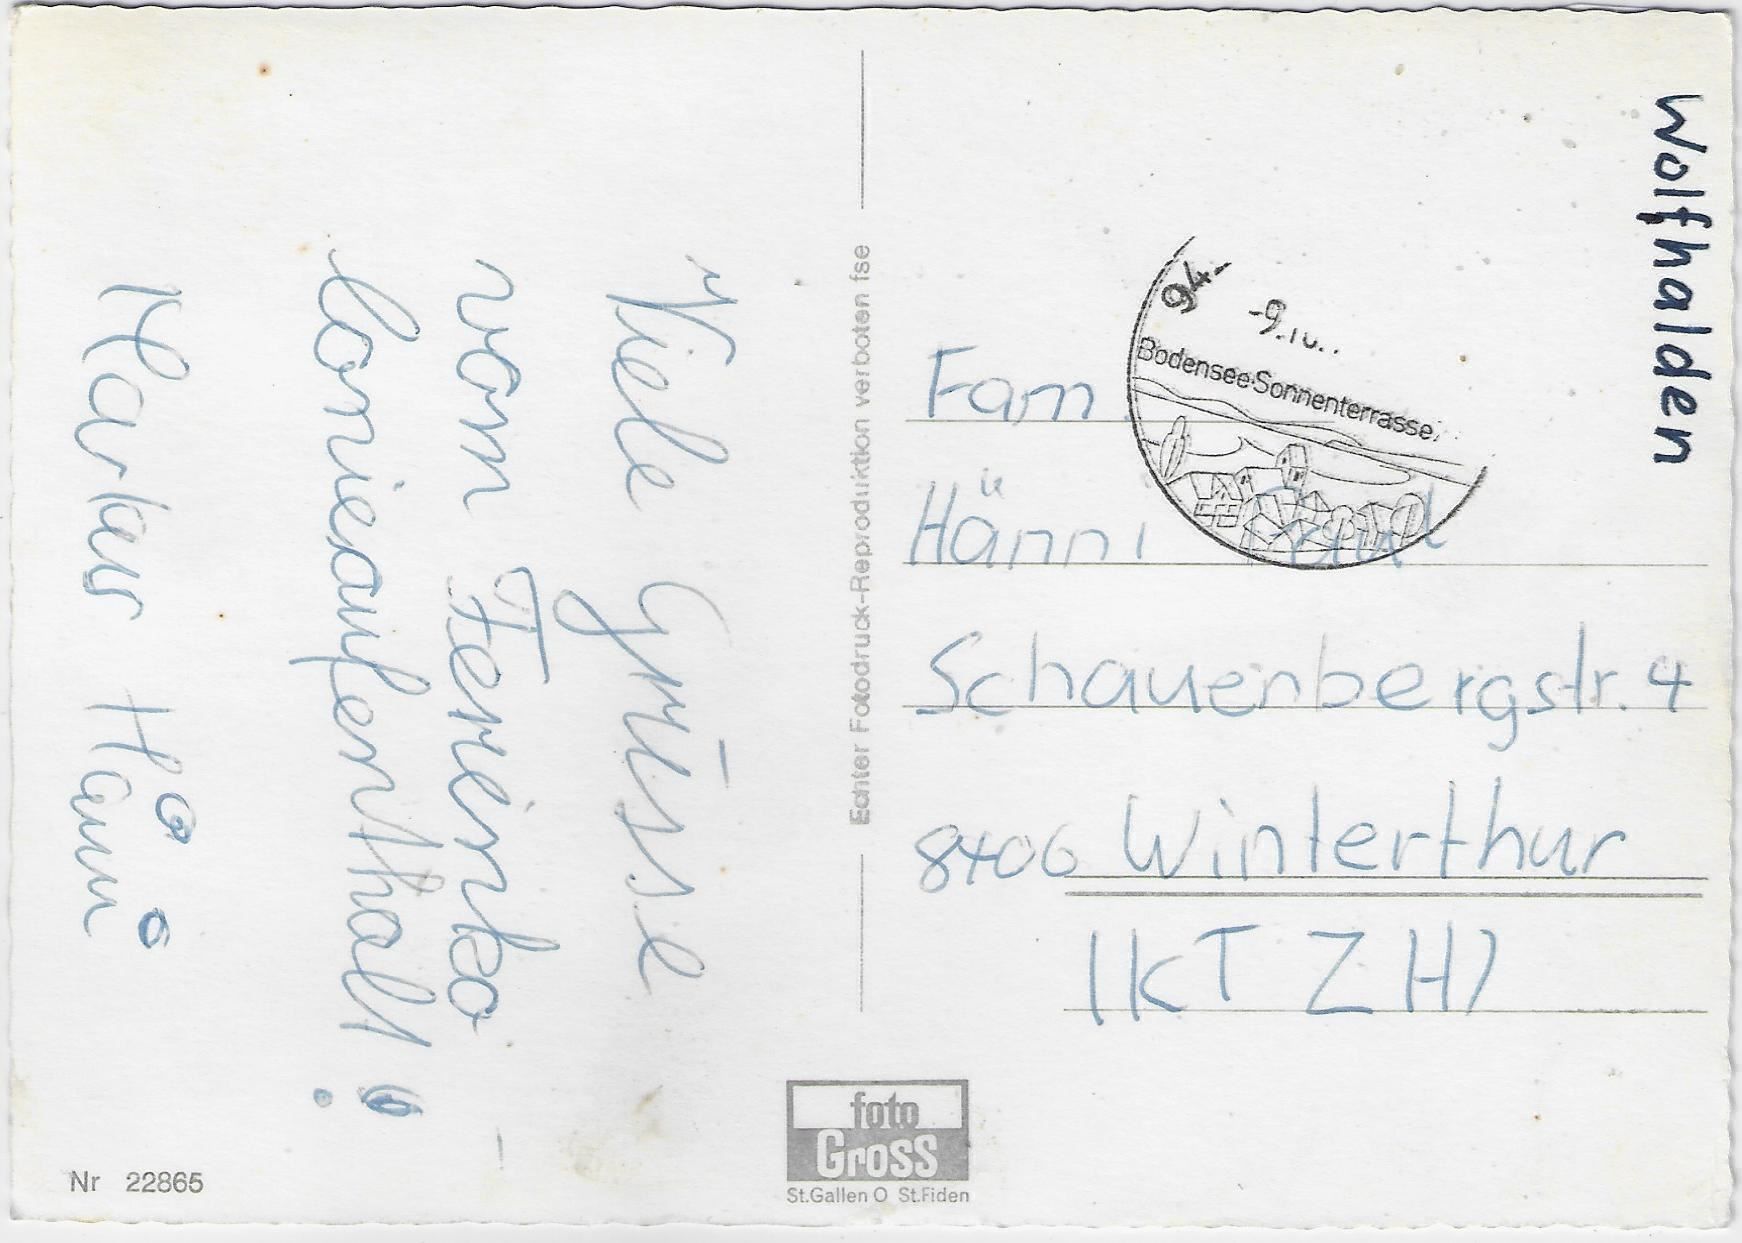 Viele Grüsse
vom Ferienko
lonieaufenthalt!
Markus Hänni
Nr 22865
Echter Fotodruck-Reproduktion verboten fse
foto
Gross
St.Gallen O St.Fiden
Wolfhalden
94-
-9.10.
Bodensee-Sonnenterrasse
Fam.
Hänni
Schauenbergstr. 4
8406 Winterthur
(KT ZH)